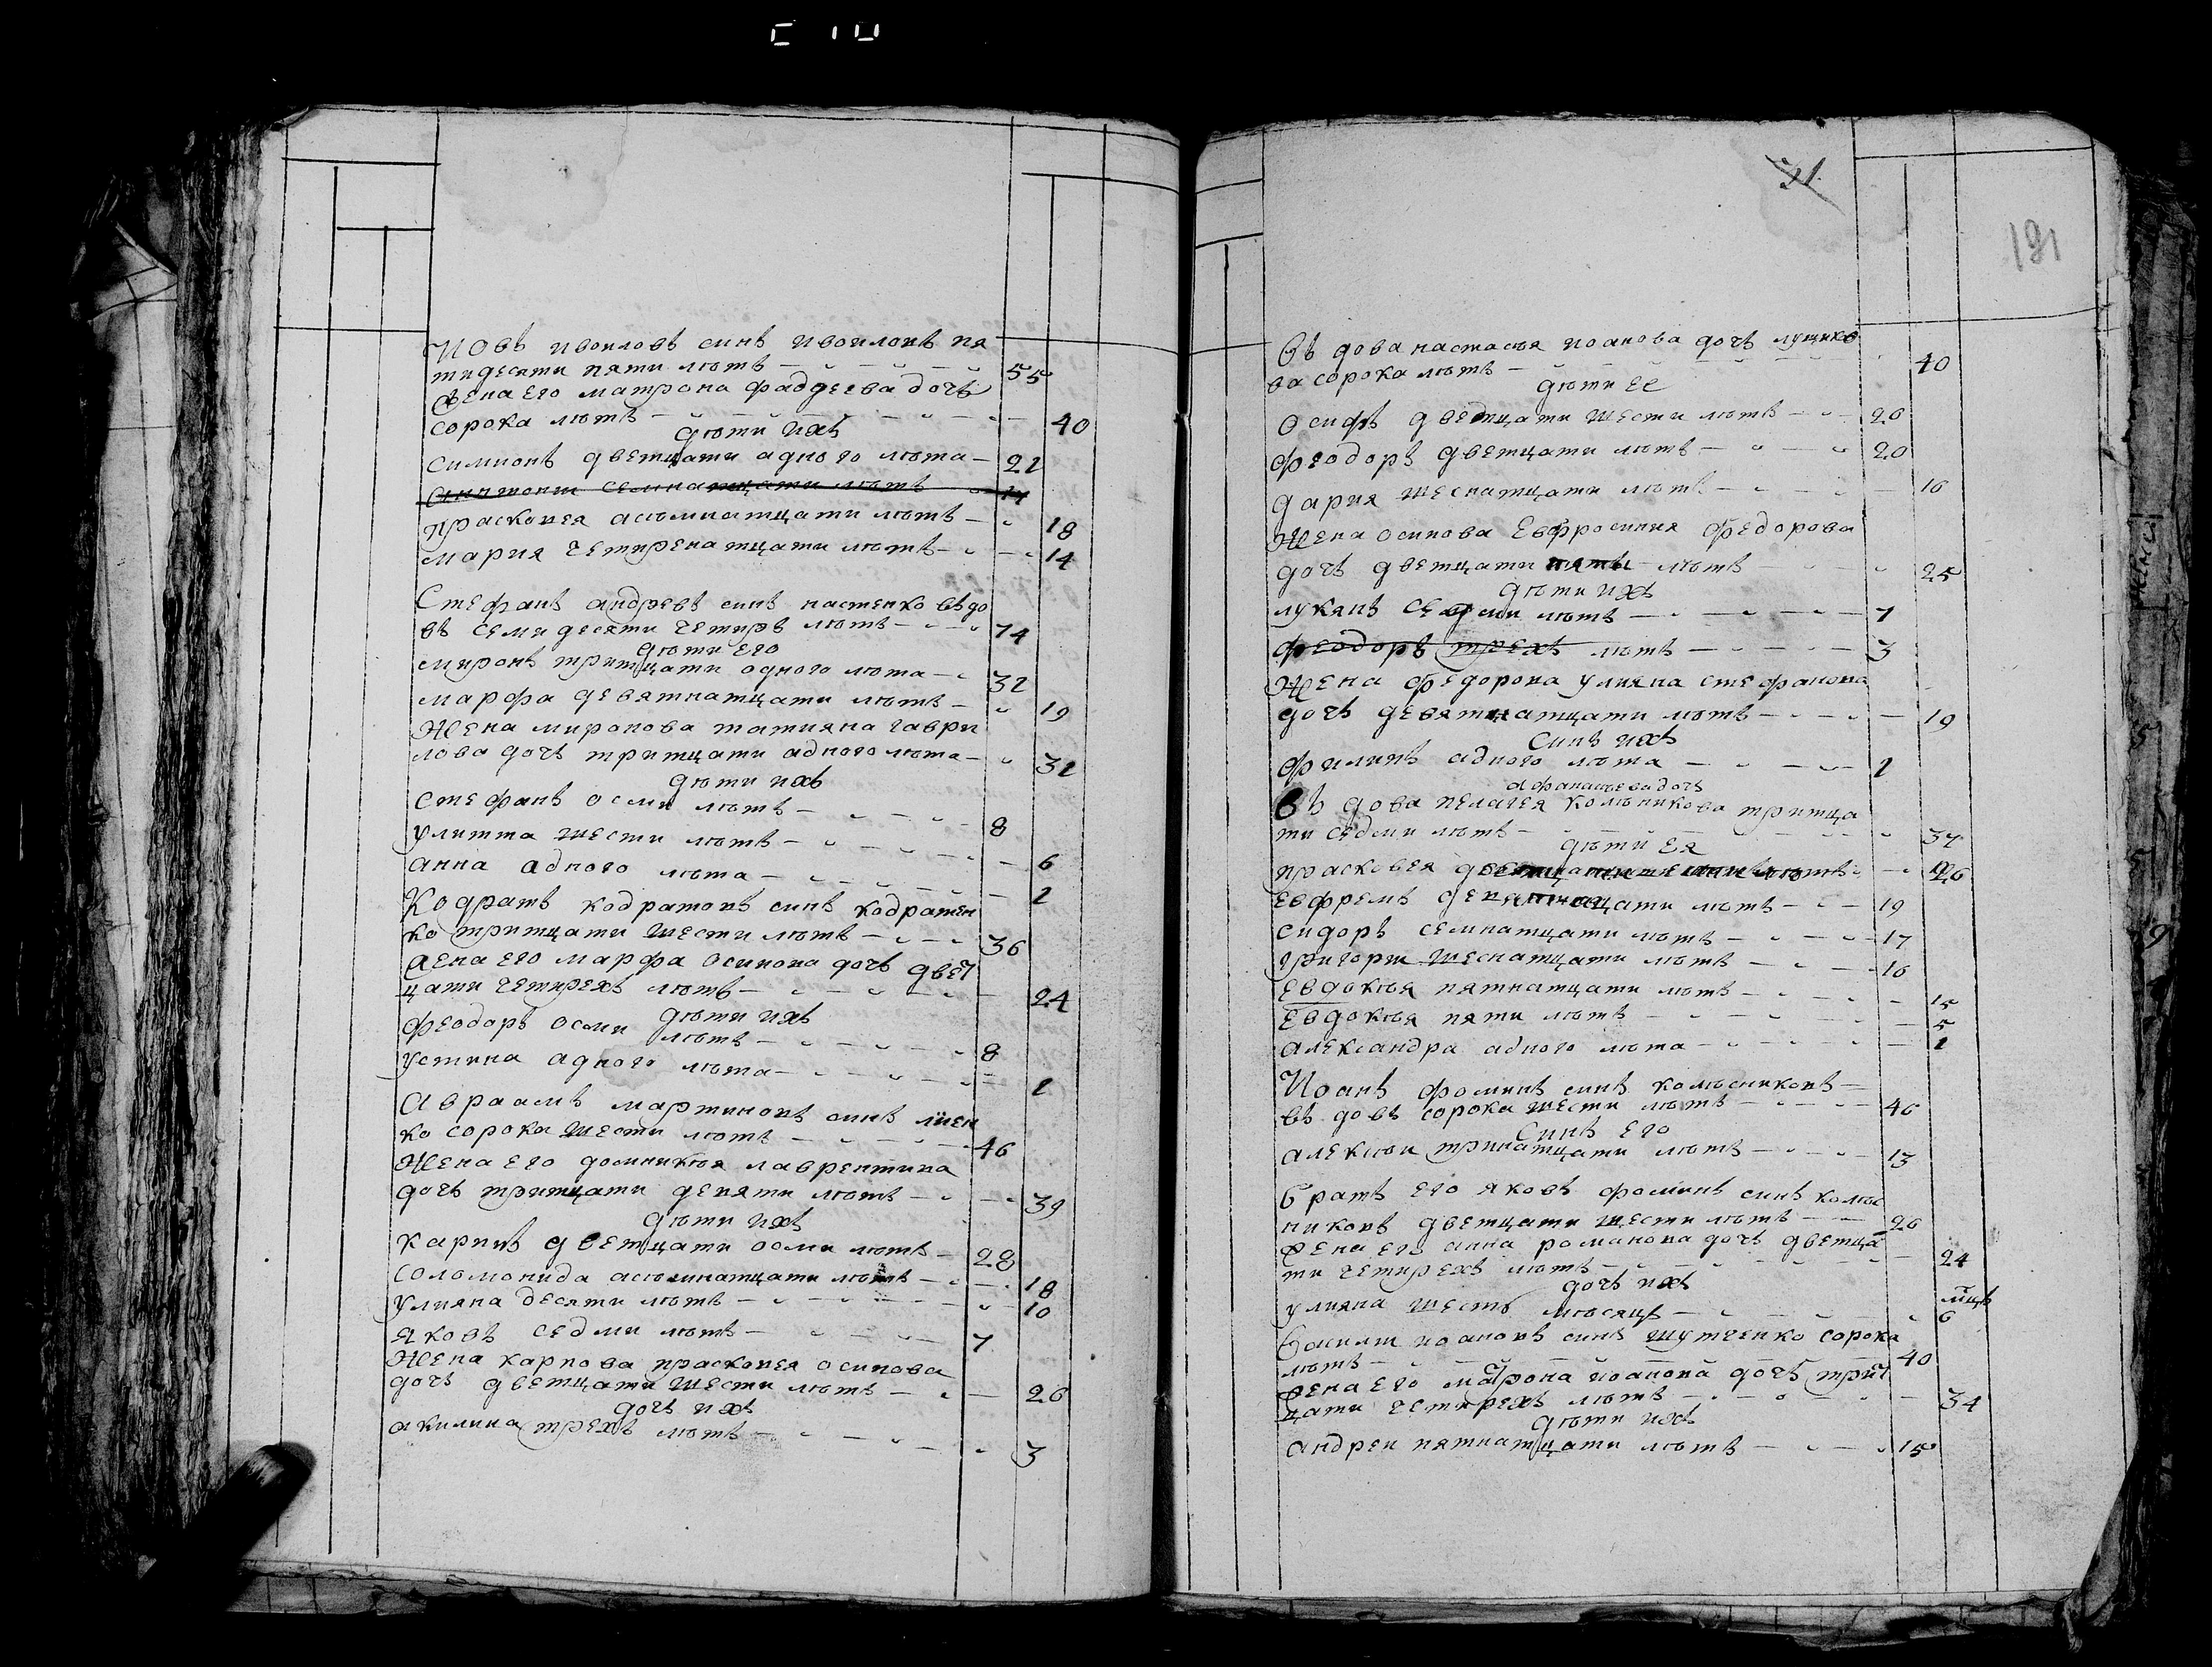 Иовъ ивоиловъ синъ ивоиловъ пя
тидесяти пяти лѣтъ 55
Жена его матрона фаддеева дочъ
сорока лѣтъ 40
дѣти ихъ
симионъ дветцати адного лѣта 21
семнатцати лѣтъ 17
прасковея асѣмнатцати лѣтъ 18
мария четиренатцати лѣтъ 14
Стефанъ андревъ синъ настенко въдо
въ семидесяти четиръ лѣтъ 74
дѣти его
миронъ тритцати одного лѣта 31
марфа девятнатцати лѣтъ 19
Жена миронова татияна гаври
лова дочъ тритцати адного лѣта 31
дѣти ихъ
Стефанъ осми лѣтъ 8
улитта шести лѣтъ 6
анна адного лѣта 1
Кодратъ кодратовъ синъ кодратен
ко тритцати шести лѣтъ 36
Жена его марфа осипова дочъ двет
цати четирехъ лѣтъ 24
дѣти ихъ
феодоръ осми лѣтъ 8
устина адного лѣта 1
Авраамъ мартиновъ синъ
ко сорока шести лѣтъ 46
Жена его домникѣя лаврентива
дочъ тритцати девяти лѣтъ 39
дѣти ихъ
карпъ дветцати осми лѣтъ 28
соломонида асѣмнатцати лѣтъ 18
улияна десяти лѣтъ 10
яковъ седми лѣтъ 7
Жена карпова прасковея осипова
дочъ дветцати шести лѣтъ 26
дочъ ихъ
акилина трехъ лѣтъ 3
31
191
Въдова настасѣя иоанова дочъ лущико
ва сорока лѣтъ 40
дѣти ее
Осифъ дветцати шести лѣтъ 26
феодоръ дветцати лѣтъ 20
дария шеснатцати лѣтъ 16
Жена осипова Евфросиния федорова
дочъ дветцати пяти лѣтъ 25
дѣти ихъ
лукянъ седми лѣтъ 7
феодоръ трехъ лѣтъ 3
Жена федорова улияна стефанова
дочъ девятнатцати лѣтъ 19
Синъ ихъ
филипъ адного лѣта 1
афанасѣева дочъ
Въдова пелагея колѣникова тритца
ти седми лѣтъ 37
дѣти ея
прасковея лѣтъ 26
Евфремъ девятнатцати лѣтъ 19
сидоръ семнатцати лѣтъ 17
григории шеснатцати лѣтъ 16
Евдокѣя пятнатцати лѣтъ 15
Евдокѣя пяти лѣтъ 5
александра адного лѣта 1
Иоанъ фоминъ синъ колѣсниковъ
въдовъ сорока шести лѣтъ 46
Синъ его
алексѣи тринатцати лѣтъ 13
братъ его яковъ фоминъ синъ колѣс
никовъ дветцати шести лѣтъ 26
Жена его анна романова дочъ дветца
ти четирехъ лѣтъ 24
дочъ ихъ
мцъ
улияна шесть мѣсяцъ 6
Василии иоановъ синъ шутченко сорока
лѣтъ 40
Жена его матрона иоанова дочъ трит
цати четирехъ лѣтъ 34
дѣти ихъ
андреи пятнатцати лѣтъ 15